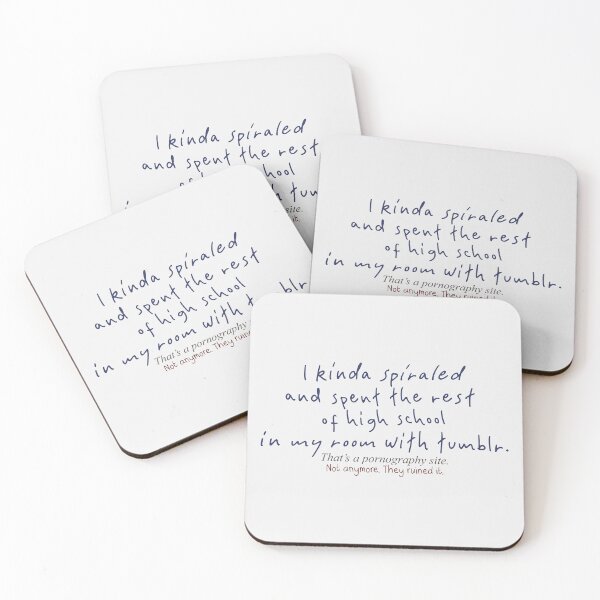 I kinda spiraled
and spent the rest
school
tumblr
site.
I kinda spiraled
and spent the rest
of high school
in my room with tumblr.
That's a pornography site.
Not anymore. They ruined it.
I kinda spiraled
and spent the rest
of high school
in my room with tumblr
That's a pornography
Not anymore. They ruined
I kinda spiraled
and spent the rest
of high school
in my room with tumblr.
That's a pornography site.
Not anymore. They ruined it.